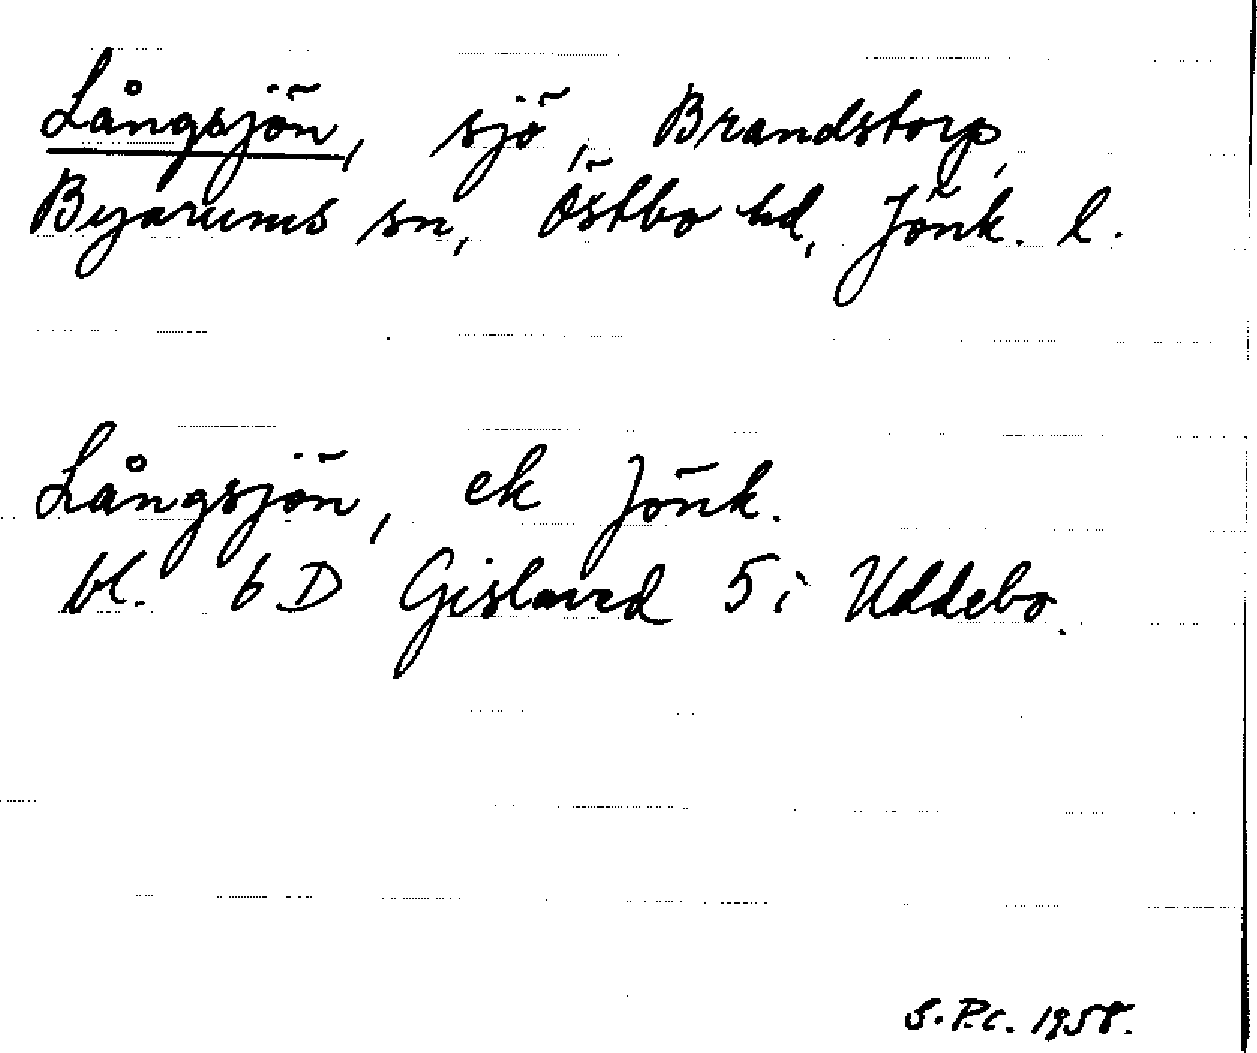 Långsjön, sjö, Brandstorp,
Byarums sn, Östbo hd, Jönk. l.
Långsjön, ek Jönk.
bl. 6 D Gislaved 5 i Uddebo.
S.P.c. 1958.